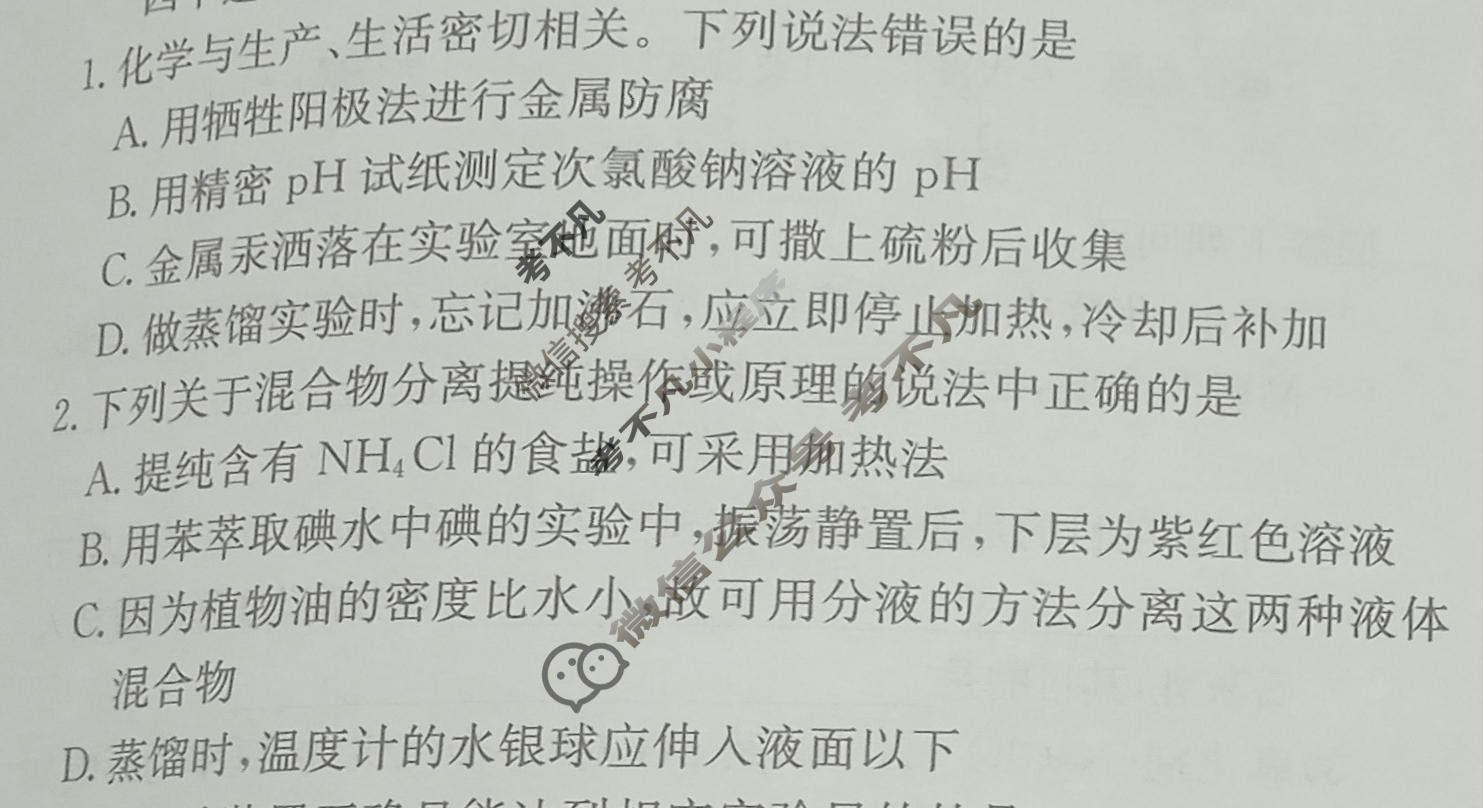 1. 化学与生产、生活密切相关。下列说法错误的是
A. 用牺牲阳极法进行金属防腐
B. 用精密 pH 试纸测定次氯酸钠溶液的 pH
C. 金属汞洒落在实验室地面时,可撒上硫粉后收集
D. 做蒸馏实验时,忘记加沸石,应立即停止加热,冷却后补加
2. 下列关于混合物分离提纯操作或原理的说法中正确的是
A. 提纯含有 NH₄Cl 的食盐,可采用加热法
B. 用苯萃取碘水中碘的实验中,振荡静置后,下层为紫红色溶液
C. 因为植物油的密度比水小,故可用分液的方法分离这两种液体
混合物
D. 蒸馏时,温度计的水银球应伸入液面以下
考不凡
微信搜索 考不凡
考不凡小程序
微信公众号 考不凡